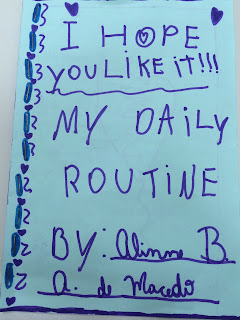 I HOPE
YOU LIKE IT!!!
MY DAILY
ROUTINE
BY: Alinne B.
A. de Macedo